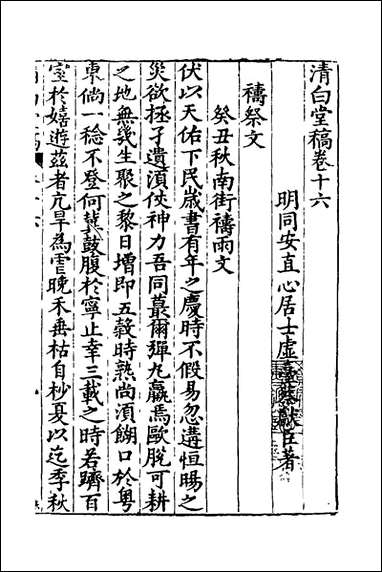 清白堂稿卷十六
明同安直心居士虛臺蔡獻臣著
禱祭文
癸丑秋南街禱雨文
伏以天佑下民歲書有年之慶時不假易忽遘恒暘之
災欲拯孑遺須俠神力吾同蕞爾彈丸嬴焉歐脫可耕
之地無幾生聚之黎日增即五穀時熟尚須餬口於粤
東倘一稔不登何冀鼓腹於寧止幸三載之時若躋百
室於嬉遊茲者亢旱為雩晚禾垂枯自杪夏以迄季秋